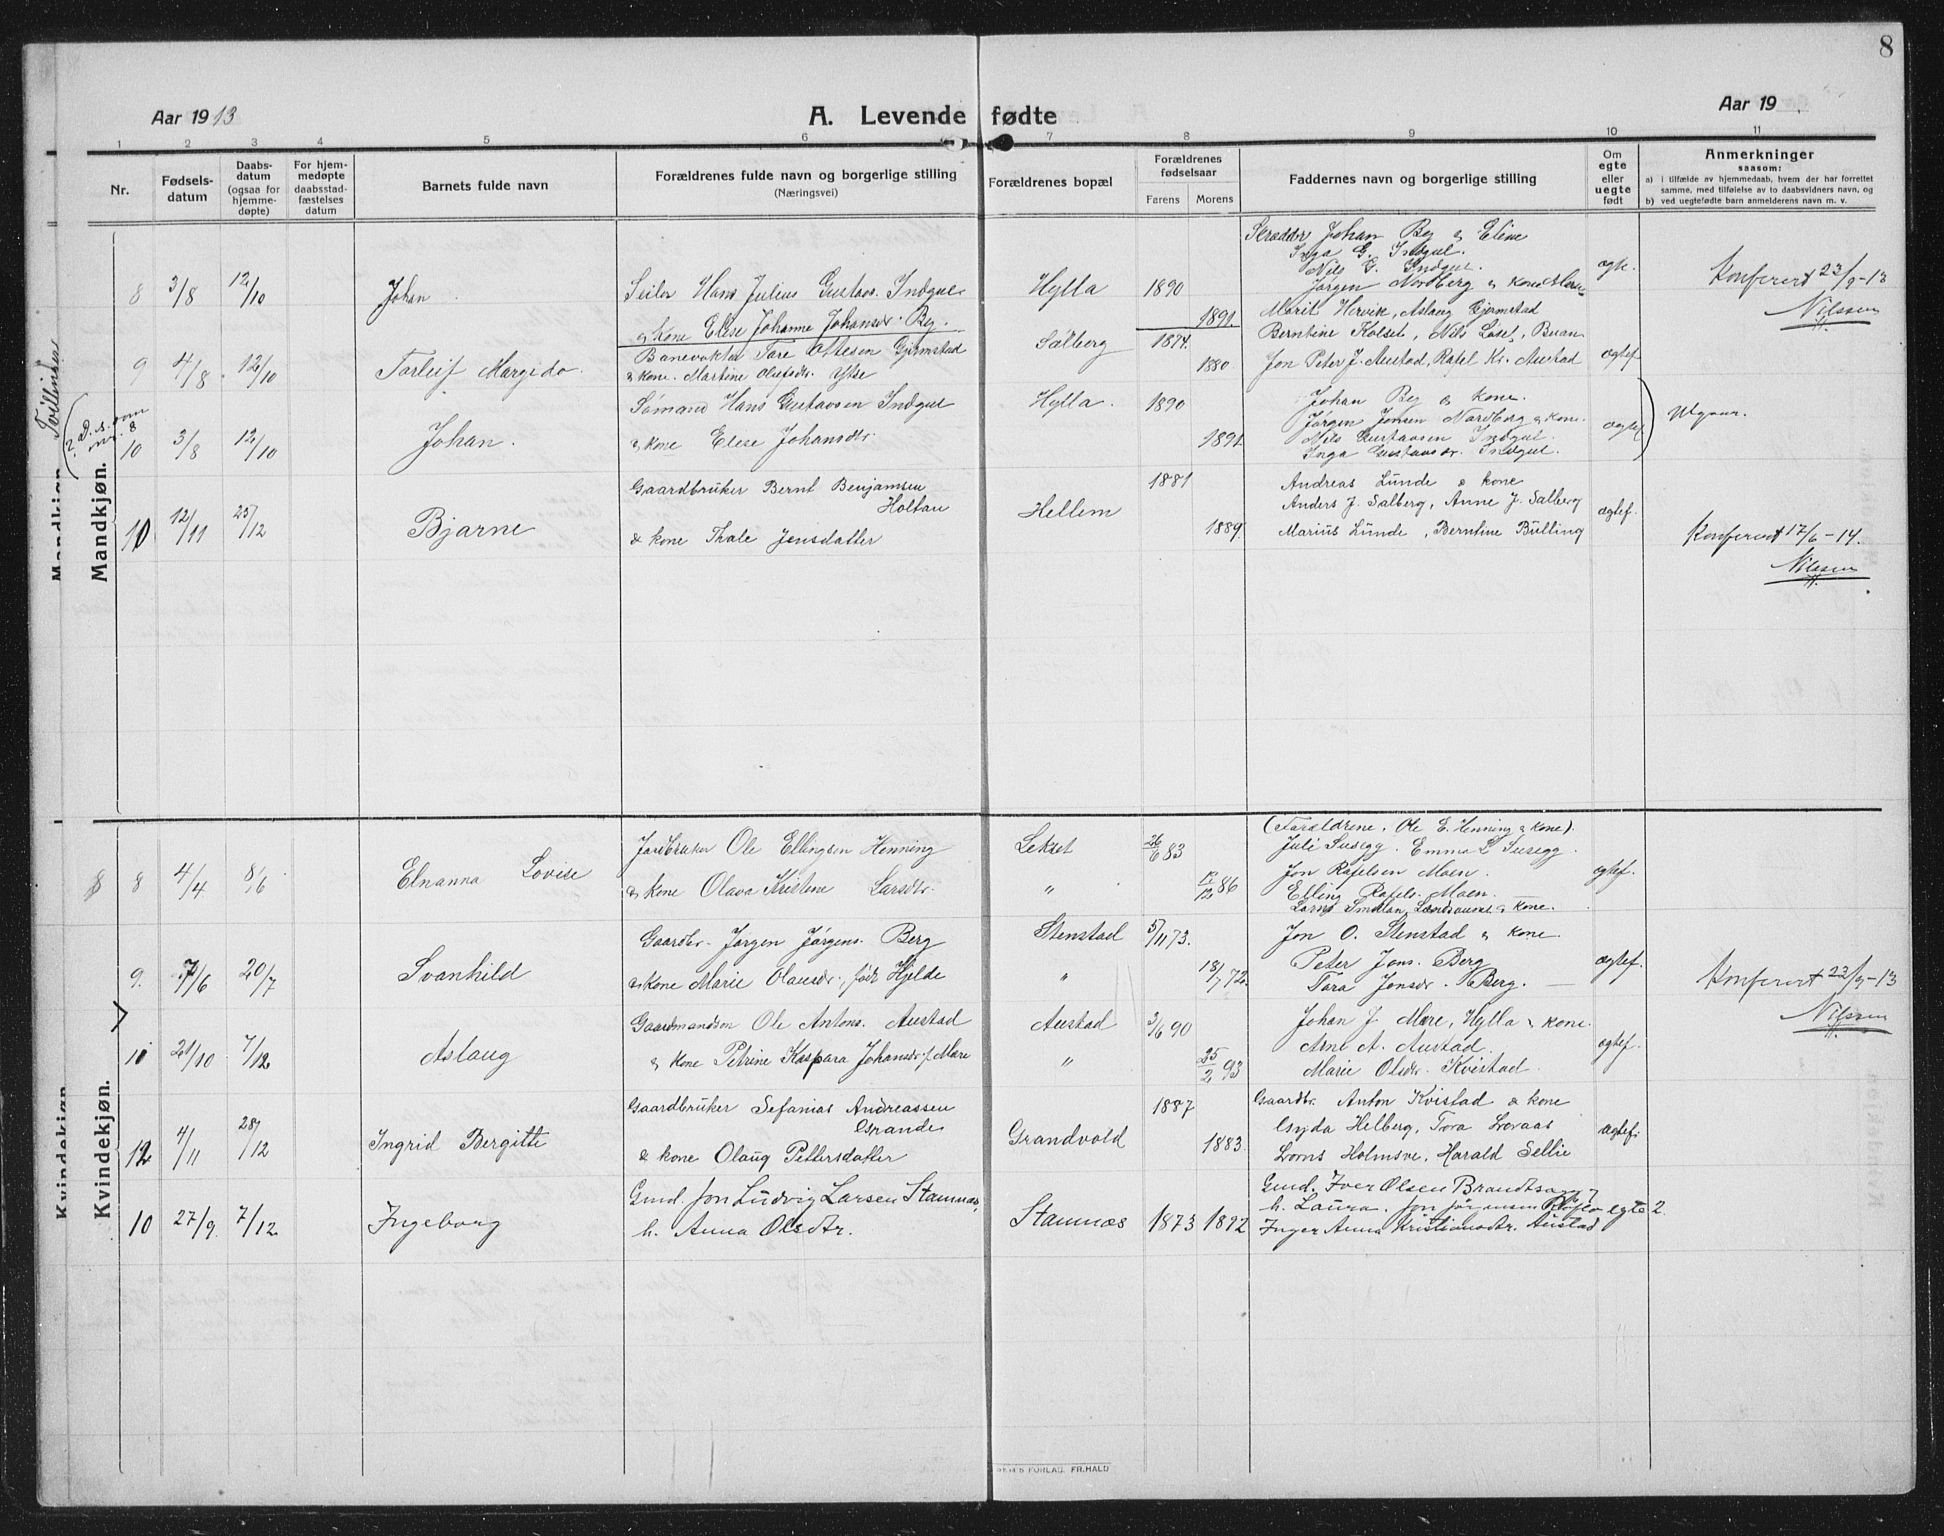 8
Aar 1913
A. Levende fødte
Aar 19
1 2 3 4 5 6 7 8 9 10 11
Nr.
Fødsels-
datum
Daabs-
datum
(ogsaa for
hjemme-
døpte)
For hjem-
medøpte
daabsstad-
fæstelses
datum
Barnets fulde navn
Forældrenes fulde navn og borgerlige stilling
(Næringsvei)
Forældrenes bopæl
Forældrenes
fødselsaar
Farens Morens
Faddernes navn og borgerlige stilling
Om
egte
eller
uegte
født
Anmerkninger
saasom:
a) i tilfælde av hjemmedaab, hvem der har forrettet
samme, med tilføielse av to daabsvidners navn, og
b) ved uegtefødte barn anmelderens navn m. v.
Mandkjøn.
Tvillinger
? D. s. som
nr. 8
Skrædder Johan Beg & Eline
Inga G. Indgul.
Nils G. Indgul.
8 3/8 12/10 Johan Seiler Hans Julius Gustavs. Indgul Hylla 1890 Jørgen Nordberg & kone
& kone Elese Johanne Johansdr. Beg. 1891
Konferert 23/9-13
Nilssen
Marit Hervik, Aslaug Gjermstad
9 4/8 12/10 Torleif Margido. Banevokter Tore Ottesen Gjermstad Salberg 1874. Berntine Kolset, Nils Løset, Buan
& kone. Martine Olufsdr. Ytse 1880 Jon Peter J. Austad, Rafel Kr. Austad ægtef
10 3/8 12/10 Johan. Sømand Hans Gustavsen Indgul Hylla. 1890 Johan Beg & kone.
Jørgen Jensen Nordberg & kone.
& kone Elese Johansdtr. 1891 Nils Gustavsen Indgul. ægtef Utgaar.
Inga Gustavsdr. Indgul.
10 12/11 25/12 Bjarne Gaardbruker Bernt Benjamsen
Holtan Hellem 1881 Andreas Lunde & kone
Anders J. Salberg, Anne J. Salberg ægtef.
& kone Thale Jensdatter 1889 Marius Lunde, Berntine Bülling
Konferert 17/6-14.
Nilssen
Kvindekjøn.
8 4/4 8/6 Elnanna Lovise Jordbruker Ole Ellingsen Henning Lekset 26/6 83 (Forældrene. Ole E. Henning & kone).
Juli Susegg. Emma L Susegg.
& kone Olava Kristine Larsdtr. " 12/12 86 Jon Rafelsen Moen. ægtef.
Elling Rafels. Moen.
9. 7/6 20/7 Svanhild Gaardbr. Jørgen Jørgens. Berg Stenstad 5/11 73. Jon O. Stenstad & kone
& kone Marie Olausdr., født Hjelde " 18/7 72. Peter Jons. Berg ægtef.
Tora Jonsdr. Berg.
Konferert 23/9-13
Nilssen
11 21/10 7/12 Aslaug Gaardmandssøn Ole Antons. Austad Austad 3/6 90 Johan J. Mære, Hylla & kone.
& kone Petrine Kaspara Johansdr f. Mære " 25/2 93 Arne A. Austad. ægtef.
Marie Olsdr. Kvistad.
12 4/11 28/12 Ingrid Bergitte Gaardbruker Sefanias Andreassen
Grande Grandvold 1887 Gaardbr. Anton Kvistad & kone
Gyda Helberg, Tora Lovaas ægtef.
& kone Olaug Pettersdatter 1883 Lorns Holmsve, Harald Sellie
10 27/9. 7/12. Ingeborg Gmd. Jon Ludvig Larsen Stamnæs, Stamnæs 1873 1892 Gmd. Iver Olsen Brandtsa
h. Anna Olsdtr. h. Laura. Jon Jørgensen egte 2.
Inger Anna Kristiansdtr. Austad
FORLAG. FR. HALD